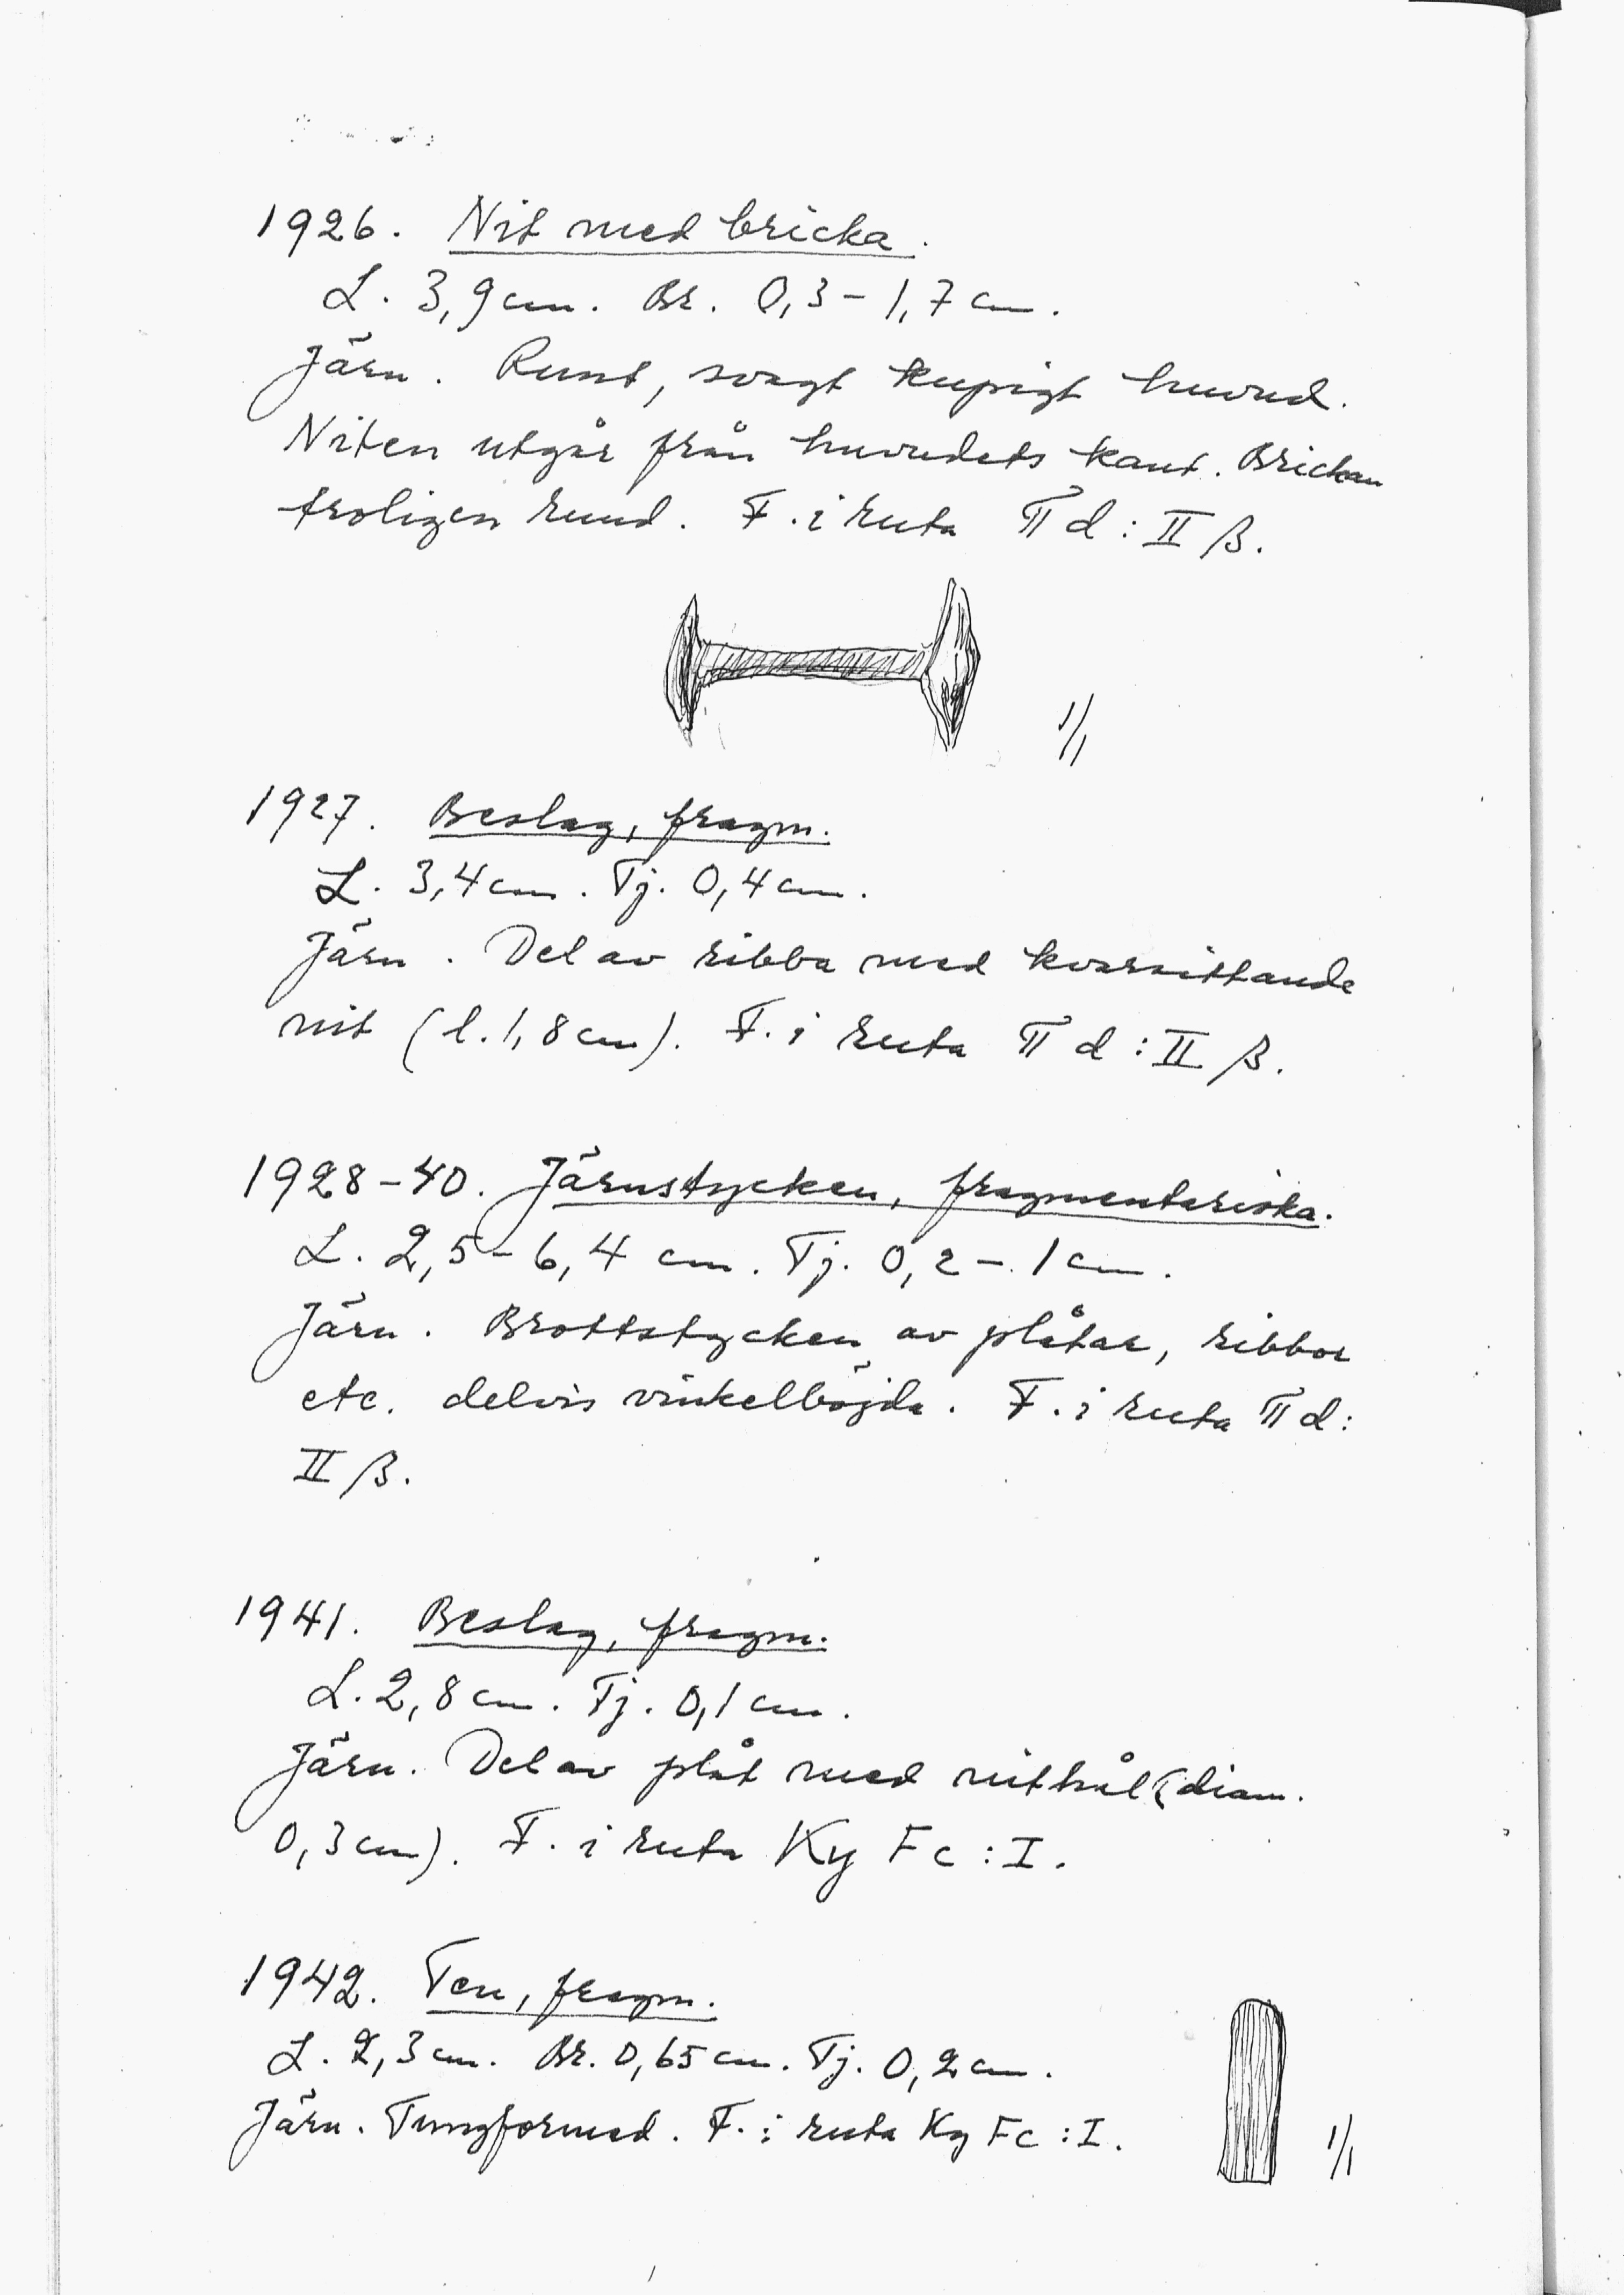 1926. Nit med bricka.
L. 3,9 cm. Br. 0,3-1,7 cm.
Järn. Runt, svagt kupigt huvud.
Niten utgår från huvudets kant. Brickan
troligen rund. F. i ruta π d : II β.
1/1
1927. Beslag, fragm.
L. 3,4 cm. Tj. 0,4 cm.
Järn. Del av ribba med kvarsittande
nit (l. 1,8 cm). F. i ruta π d : II β.
1928-40. Järnstycken, fragmentariska.
L. 2,5-6,4 cm. Tj. 0,2-1 cm.
Järn. Brottstycken av plåtar, ribbor
etc. delvis vinkelböjda. F. i ruta π d:
II β.
1941. Beslag, fragm.
L. 2,8 cm. Tj. 0,1 cm.
Järn. Del av plåt med nithål (diam.
0,3 cm). F. i ruta Ky Fc : I.
1942. Ten, fragm.
L. 2,3 cm. Br. 0,65 cm. Tj. 0,2 cm.
Järn. Tungformad. F. i ruta Ky Fc : I.
1/1